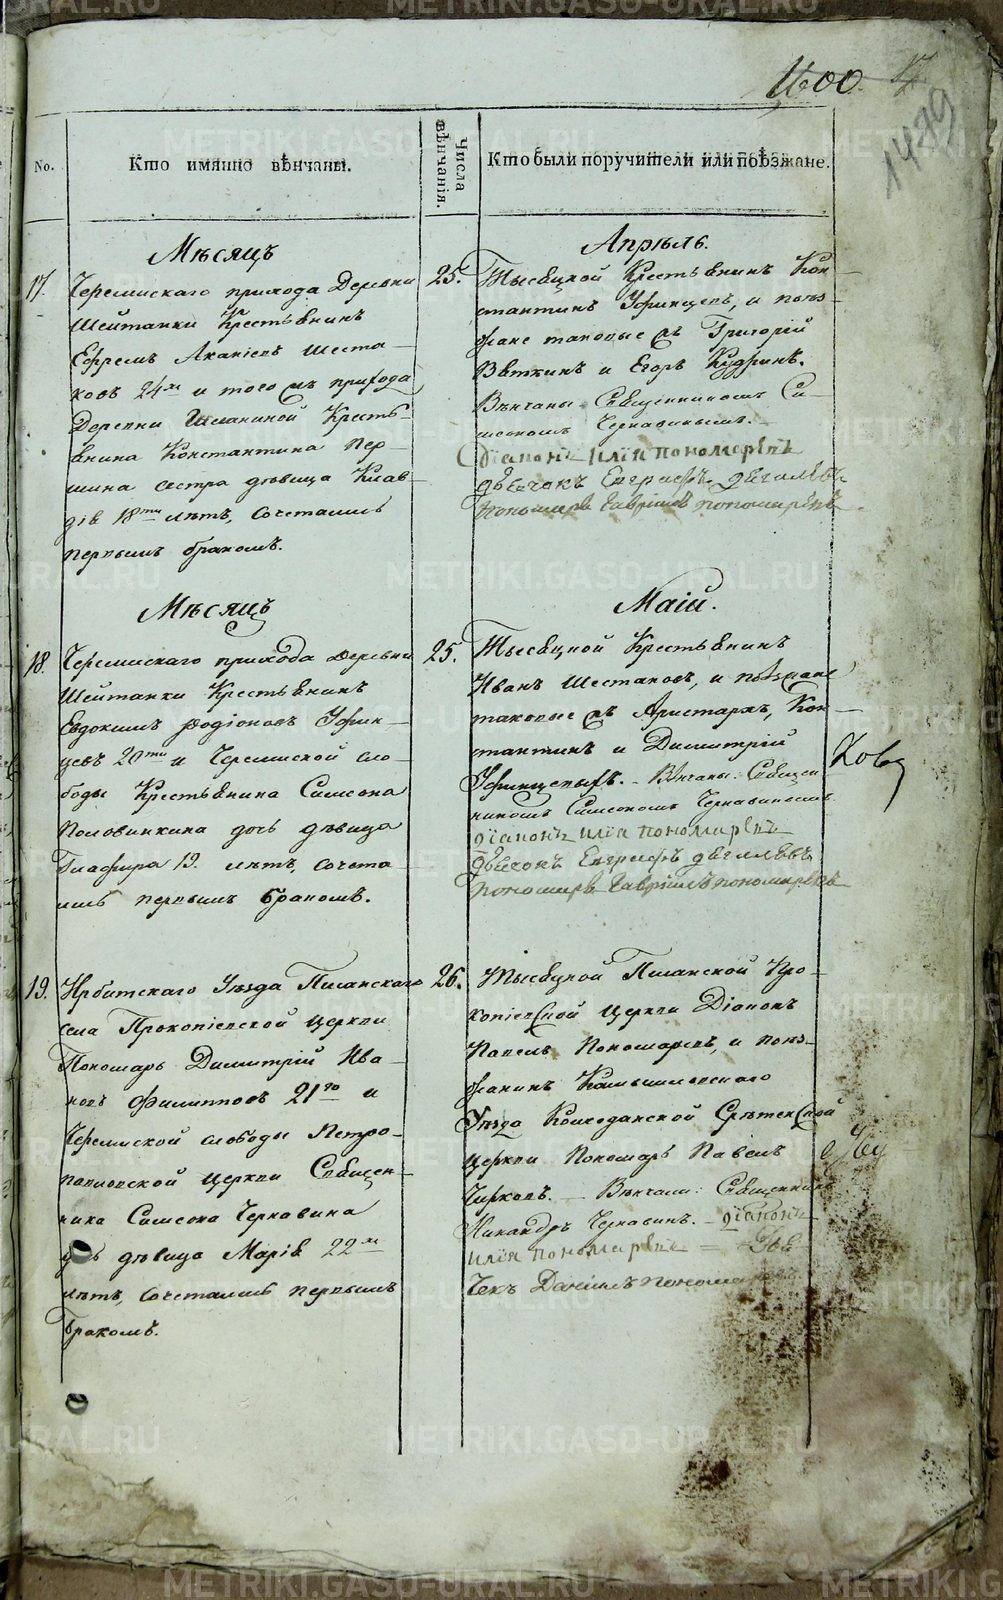 1600
1479
No.
Кто имянно вѣнчаны.
Числа вѣнчанія.
Кто были поручители или поѣзжане.
Мѣсяцъ
Апрѣль.
17.
Черемискаго прихода Деревни
Шейтанки Крестьянинъ
Ефремъ Акакіевъ Шеста-
ковъ 24хъ и того съ прихода
Деревни Крестья-
янина Константина Пер-
шина сестра дѣвица Клав-
дія 18ти лѣтъ, сочетались
первымъ бракомъ.
25.
Тысяцкой Крестьянинъ Кон-
стантинъ Уфинцевъ, и поѣз-
жане таковые съ Григорій
Вяткинъ и Егоръ Кудринъ.
Вѣнчаны Священникомъ Си-
меономъ Чернавинымъ.
Діаконъ Илія пономаревъ
дьячокъ Евграфъ дягилевъ
пономарь Гавріилъ пономаревъ
Мѣсяцъ
Маій.
18.
Черемискаго прихода деревни
Шейтанки Крестьянинъ
Евдокимъ Родіоновъ Уфин-
цевъ 20ти и Черемиской сло-
боды Крестьянина Симеона
Половинкина дочь дѣвица
Глафира 19. лѣтъ, сочета-
лись первымъ бракомъ.
25.
Тысяцкой Крестьянинъ
Иванъ Шестаковъ, и поѣзжане
таковые съ Аристархъ, Кон-
стантинъ и Димитрій
Уфинцевыхъ. Вѣнчаны: Священ
никомъ Симеономъ Чернавинымъ
діаконъ Илія пономаревъ
дьячокъ Евграфъ дягилевъ
пономарь Гавріилъ пономаревъ
19.
Ирбитскаго Уѣзда Писанскаго
села Прокопіевской церкви
Пономарь Димитрій Ива-
новъ Филипповъ 21го и
Черемиской слободы Петро-
павловской церкви Священ-
ника Симеона Чернавина
дѣвица Марія 22хъ
лѣтъ, сочетались первымъ
бракомъ.
26.
Тысяцкой Писанской Про-
копіевской церкви Діаконъ
Павелъ Пономаревъ, и поѣз-
жанинъ Камышловскаго
Уѣзда Срѣтенской
церкви Пономарь Павелъ
Чирковъ. Вѣнчали: Священникъ
Никандръ Чернавинъ. діаконъ
Илія пономаревъ Дья
чекъ Даніилъ пономаревъ
METRIKI.GASO-URAL.RU